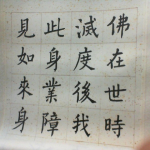 佛在世時
滅度後我
此身業障
見如來身